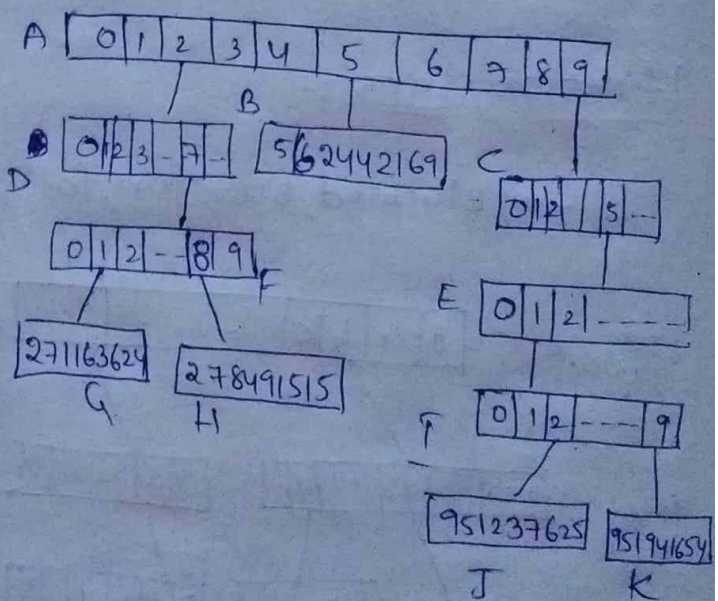 A 0 1 2 3 4 5 6 7 8 9
B
D 0 1 2 3 - 7 - -
562442169
C 0 1 2 5 ---
0 1 2 -- 8 9 F
E 0 1 2 -----
271163624
278491515
G H
0 1 2 ---- 9
951237625
951941654
J K